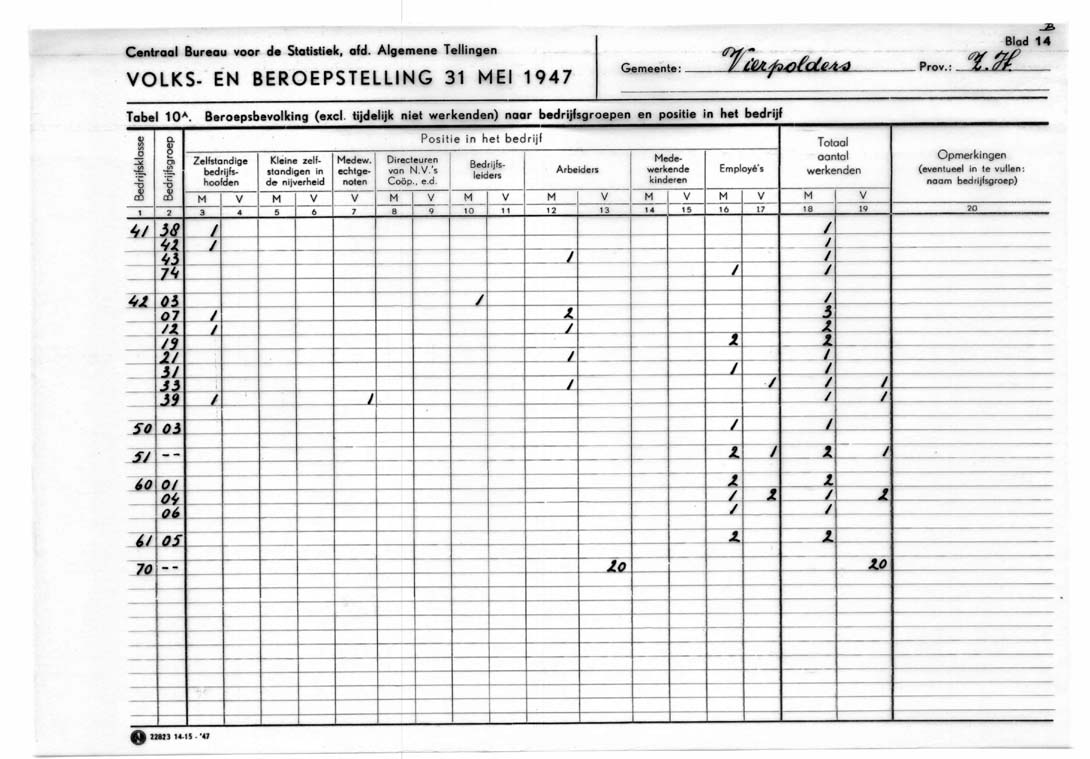 B
Blad 14
Centraal Bureau voor de Statistiek, afd. Algemene Tellingen
VOLKS- EN BEROEPSTELLING 31 MEI 1947
Gemeente: Vierpolders Prov.: Z.H.
Tabel 10A. Beroepsbevolking (excl. tijdelijk niet werkenden) naar bedrijfsgroepen en positie in het bedrijf
Bedrijfsklasse
Bedrijfsgroep
Positie in het bedrijf
Zelfstandige bedrijfs-hoofden
Kleine zelf-standigen in de nijverheid
Medew. echtge-noten
Directeuren van N.V.'s Coöp., e.d.
Bedrijfs-leiders
Arbeiders
Mede-werkende kinderen
Employé's
Totaal aantal werkenden
Opmerkingen (eventueel in te vullen: naam bedrijfsgroep)
M V M V V M V M V M V M V M V M V
1 2 3 4 5 6 7 8 9 10 11 12 13 14 15 16 17 18 19 20
41 38 1 1
42 1 1
43 1 1
74 1 1
42 03 1 1
07 1 2 3
12 1 1 2
19 2 2
21 1 1
31 1 1
33 1 1 1 1
39 1 1 1 1
50 03 1 1
51 -- 2 1 2 1
60 01 2 2
04 1 2 1 2
06 1 1
61 05 2 2
70 -- 20 20
22823 14-15 - '47